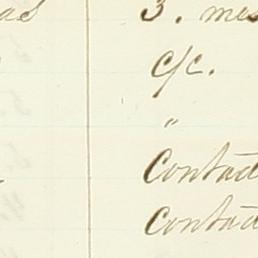 as 3. mes
c/c.
"
Contad
Contad